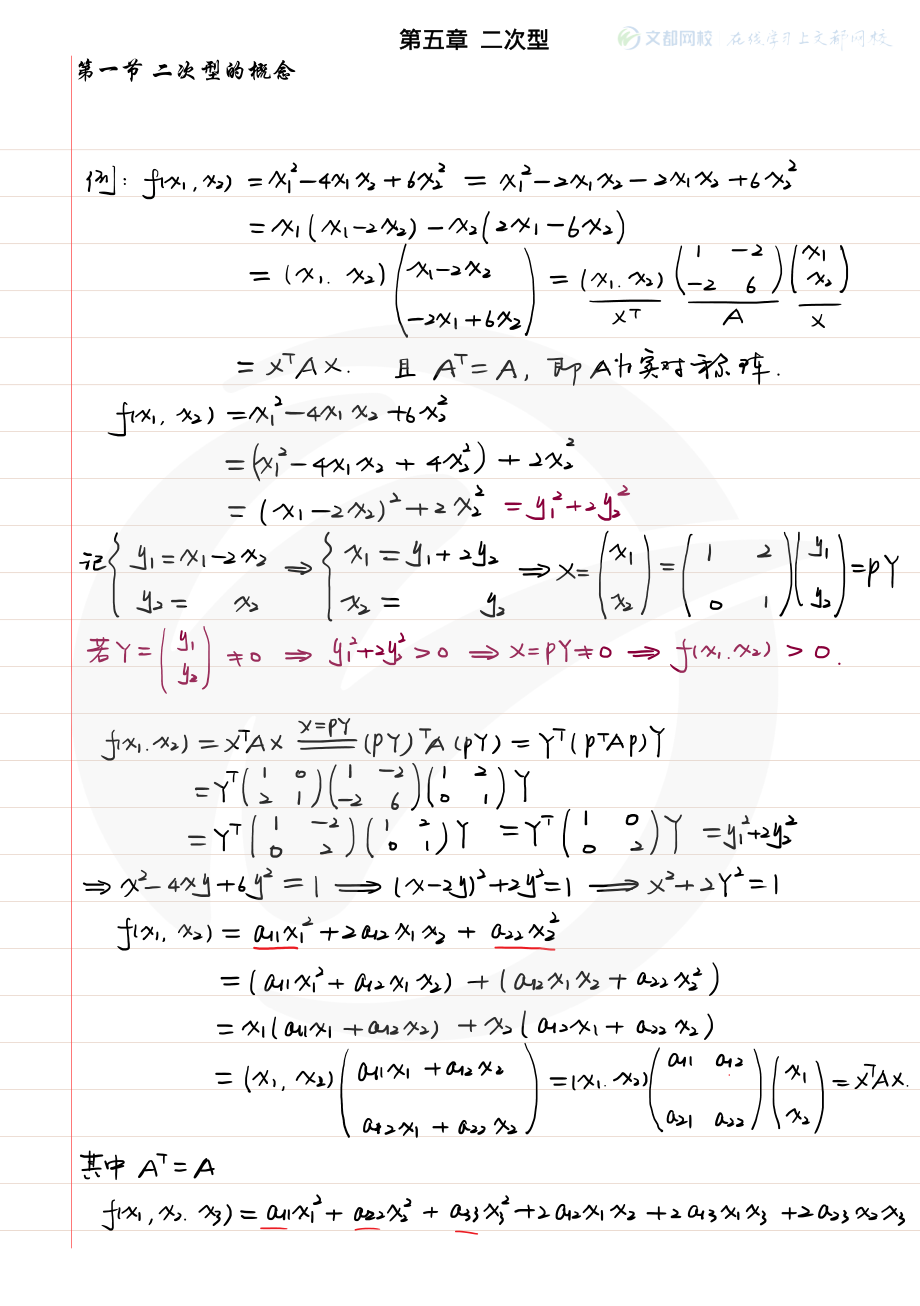 第五章 二次型
文都网校 在线学习上文都网校
第一节 二次型的概念
例: f(x₁, x₂) = x₁² − 4x₁x₂ + 6x₂² = x₁² − 2x₁x₂ − 2x₁x₂ + 6x₂²
= x₁(x₁ − 2x₂) − x₂(2x₁ − 6x₂)
= (x₁. x₂) (x₁ − 2x₂ ; −2x₁ + 6x₂) = (x₁. x₂) (1 −2 ; −2 6) (x₁ ; x₂)
xᵀ A x
= xᵀAx. 且 Aᵀ = A, 即 A为实对称阵.
f(x₁, x₂) = x₁² − 4x₁x₂ + 6x₂²
= (x₁² − 4x₁x₂ + 4x₂²) + 2x₂²
= (x₁ − 2x₂)² + 2x₂² = y₁² + 2y₂²
记 { y₁ = x₁ − 2x₂ ; y₂ = x₂ ⇒ { x₁ = y₁ + 2y₂ ; x₂ = y₂ ⇒ x = (x₁ ; x₂) = (1 2 ; 0 1) (y₁ ; y₂) = PY
若 Y = (y₁ ; y₂) ≠ 0 ⇒ y₁² + 2y₂² > 0 ⇒ x = PY ≠ 0 ⇒ f(x₁. x₂) > 0.
f(x₁. x₂) = xᵀAx ==(x=PY)== (PY)ᵀA(PY) = Yᵀ(PᵀAP)Y
= Yᵀ (1 0 ; 2 1) (1 −2 ; −2 6) (1 2 ; 0 1) Y
= Yᵀ (1 −2 ; 0 2) (1 2 ; 0 1) Y = Yᵀ (1 0 ; 0 2) Y = y₁² + 2y₂²
⇒ x² − 4xy + 6y² = 1 ⟹ (x − 2y)² + 2y² = 1 ⟹ x² + 2Y² = 1
f(x₁, x₂) = a₁₁x₁² + 2a₁₂x₁x₂ + a₂₂x₂²
= (a₁₁x₁² + a₁₂x₁x₂) + (a₁₂x₁x₂ + a₂₂x₂²)
= x₁(a₁₁x₁ + a₁₂x₂) + x₂(a₁₂x₁ + a₂₂x₂)
= (x₁, x₂) (a₁₁x₁ + a₁₂x₂ ; a₁₂x₁ + a₂₂x₂) = (x₁. x₂) (a₁₁ a₁₂ ; a₂₁ a₂₂) (x₁ ; x₂) = xᵀAx.
其中 Aᵀ = A
f(x₁, x₂. x₃) = a₁₁x₁² + a₂₂x₂² + a₃₃x₃² + 2a₁₂x₁x₂ + 2a₁₃x₁x₃ + 2a₂₃x₂x₃